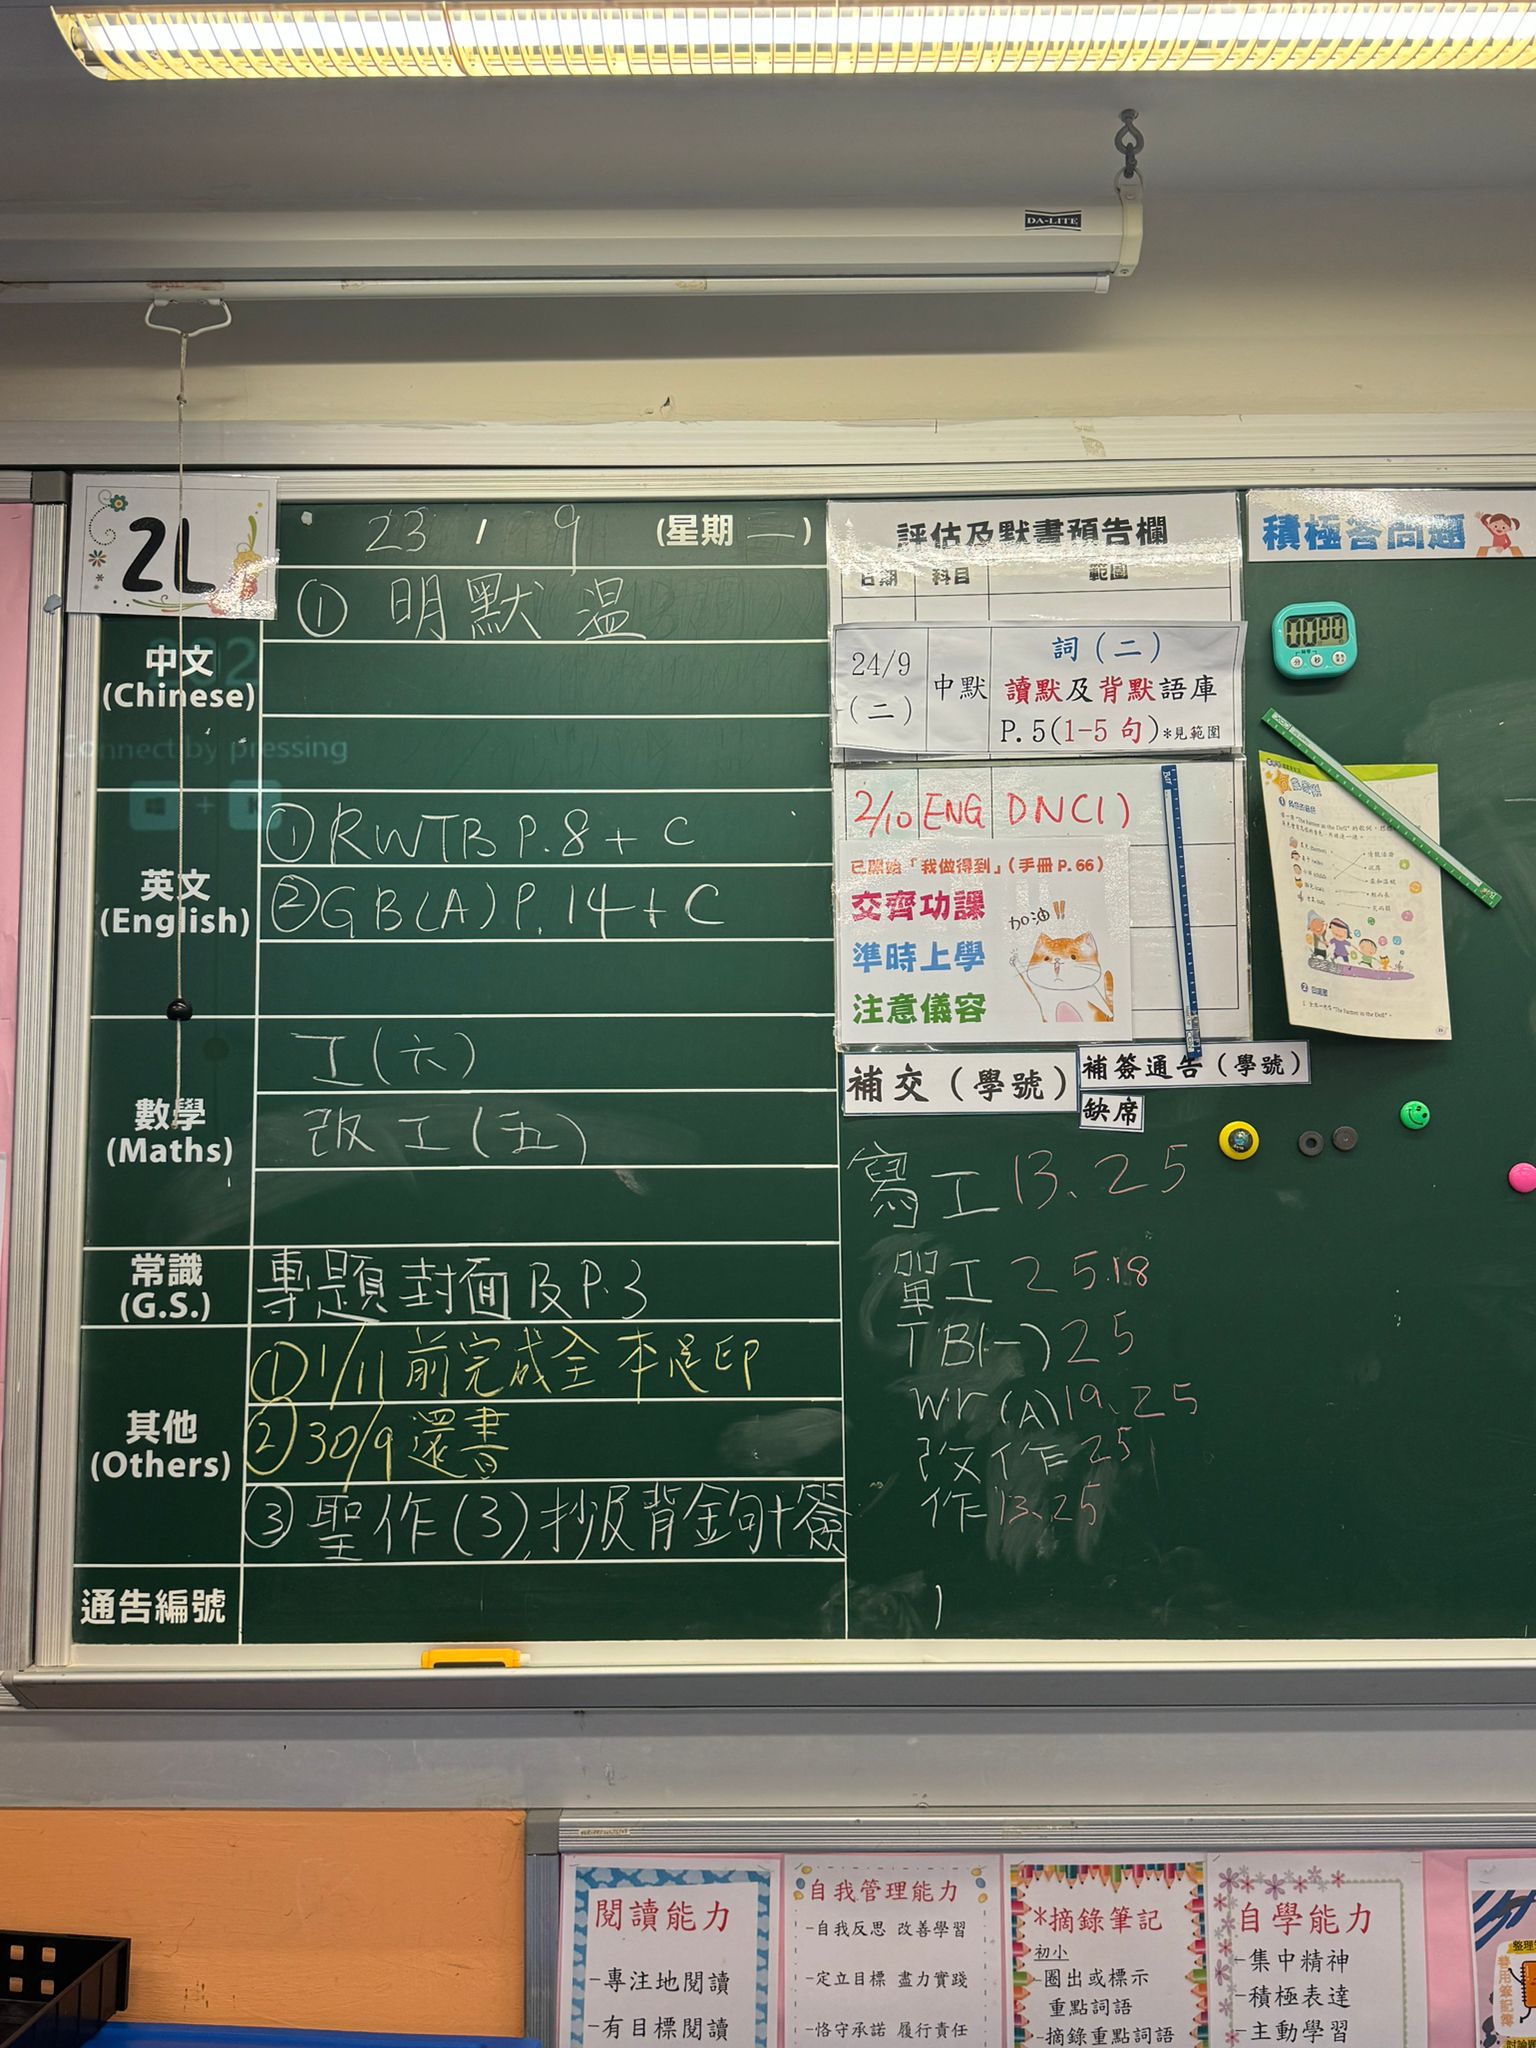 DA-LITE
2L
23 / 9 (星期 一)
① 明默溫
中文
(Chinese)
Connect by pressing
英文
(English)
① RWTB P.8 + C
② GB(A) P.14 + C
數學
(Maths)
工(六)
改工(五)
常識
(G.S.)
專題封面及P.3
其他
(Others)
① 1/11 前完成全本足印
② 30/9 還書
③ 聖作(3),抄及背金句+簽
通告編號
評估及默書預告欄
日期 科目 範圍
24/9
(二)
中默
詞(二)
讀默及背默語庫
P.5(1-5句)*見範圍
2/10 ENG DNC1)
已開始「我做得到」(手冊 P.66)
交齊功課
準時上學
注意儀容
加油!!
補交(學號)
補簽通告(學號)
缺席
寫工 13、25
單工 25.18
TB(一) 25
Wr (A) 19、25
改作 25
作 13.25
積極答問題
00 00
分 秒
"The Farmer in the Dell"
閱讀能力
-專注地閱讀
-有目標閱讀
自我管理能力
-自我反思 改善學習
-定立目標 盡力實踐
-恪守承諾 履行責任
*摘錄筆記
初小
-圈出或標示
重點詞語
-摘錄重點詞語
自學能力
-集中精神
-積極表達
-主動學習